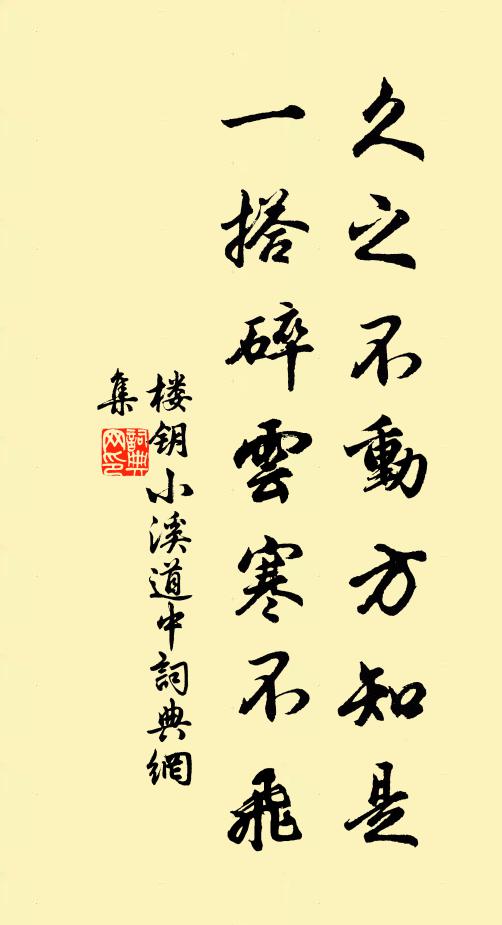 久之不動方知是
一搭碎雲寒不飛
楼钥小溪道中詞典網
集
詞典
网印